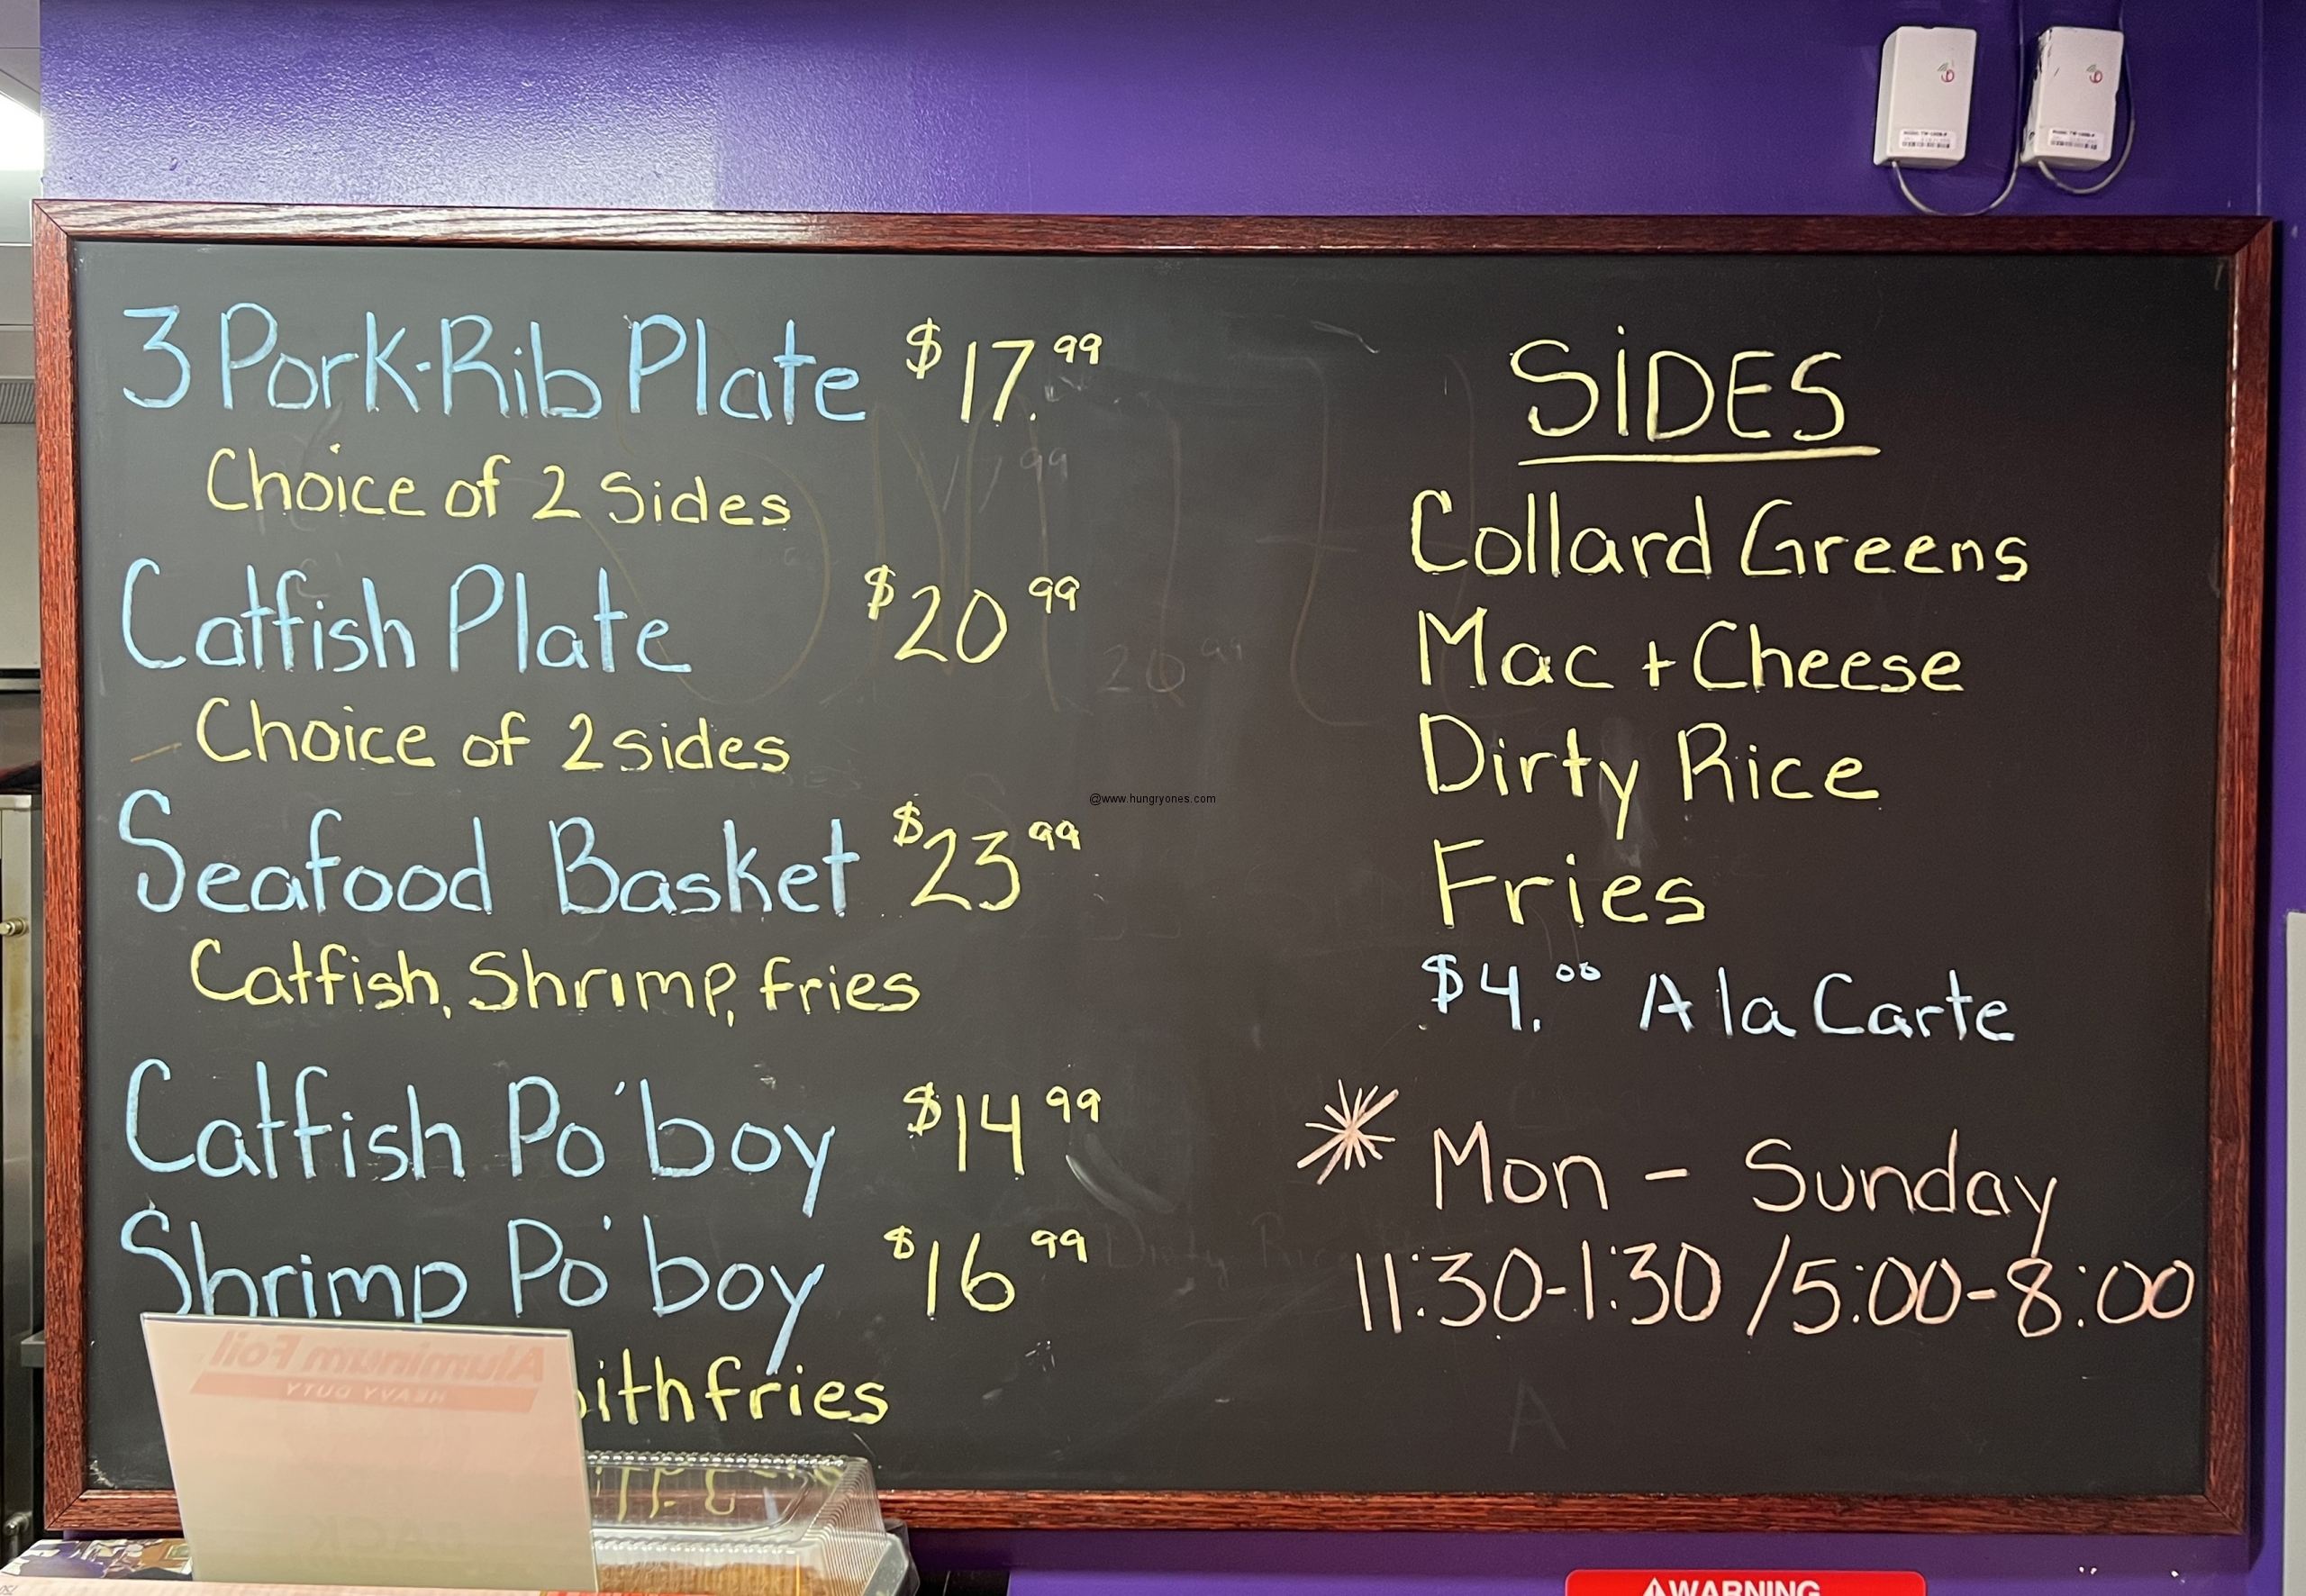 3 Pork-Rib Plate $17.99
Choice of 2 Sides
Catfish Plate $20 99
Choice of 2 sides
Seafood Basket $23 99
Catfish, Shrimp, fries
Catfish Po'boy $14 99
Shrimp Po'boy $16 99
fries
SiDES
Collard Greens
Mac + Cheese
Dirty Rice
Fries
$4.00 A la Carte
Mon - Sunday
11:30-1:30 / 5:00-8:00
@www.hungryones.com
Aluminum Foil
HEAVY DUTY
WARNING